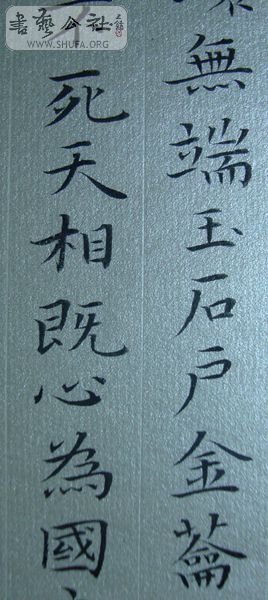 書藝公社
WWW.SHUFA.ORG
無端玉石户金蘥
死天相既心為國